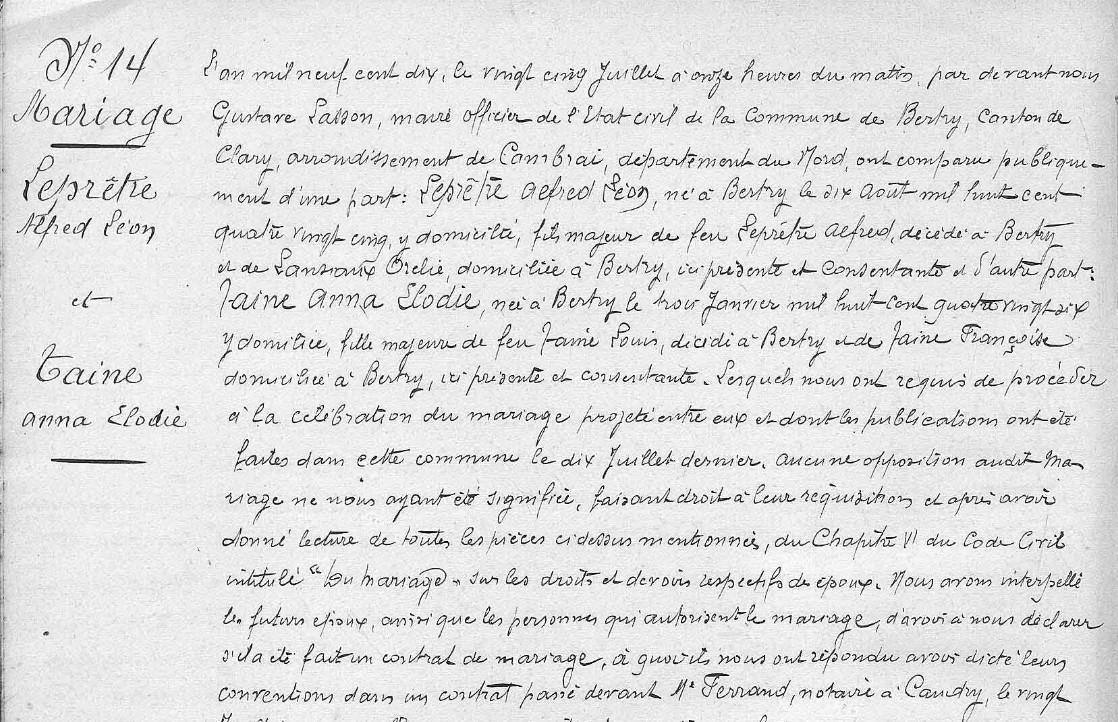 N° 14
Mariage
Leprêtre
Alfred Léon
et
Taine
Anna Elodie
L'an mil neuf cent dix, le vingt cinq Juillet à onze heures du matin, par devant nous
Gustave Lasson, maire officier de l'Etat civil de la Commune de Bertry, Canton de
Clary, arrondissement de Cambrai, département du Nord, ont comparu publique-
ment d'une part: Leprêtre Alfred Léon, né à Bertry le dix Août mil huit cent
quatre vingt cinq, y domicilié, fils majeur de feu Leprêtre Alfred, décédé à Bertry
et de Lansiaux Orélie, domiciliée à Bertry, ici présente et consentante et d'autre part:
Taine Anna Elodie, née à Bertry le trois Janvier mil huit cent quatre vingt dix
y domiciliée, fille majeure de feu Taine Louis, décédé à Bertry et de Taine Françoise
domiciliée à Bertry, ici présente et consentante. Lesquels nous ont requis de procéder
à la célébration du mariage projeté entre eux et dont les publications ont été
faites dans cette commune le dix Juillet dernier. Aucune opposition audit Ma-
riage ne nous ayant été signifiée, faisant droit à leur réquisition et après avoir
donné lecture de toutes les pièces cidessus mentionnées, du Chapitre VI du Code Civil
intitulé "Du mariage" sur les droits et devoirs respectifs des époux. Nous avons interpellé
les futurs époux, ainsi que les personnes qui autorisent le mariage, d'avoir à nous déclarer
s'il a été fait un contrat de mariage, à quoi ils nous ont répondu avoir dicté leurs
conventions dans un contrat passé devant Me Ferrand, notaire à Caudry, le vingt